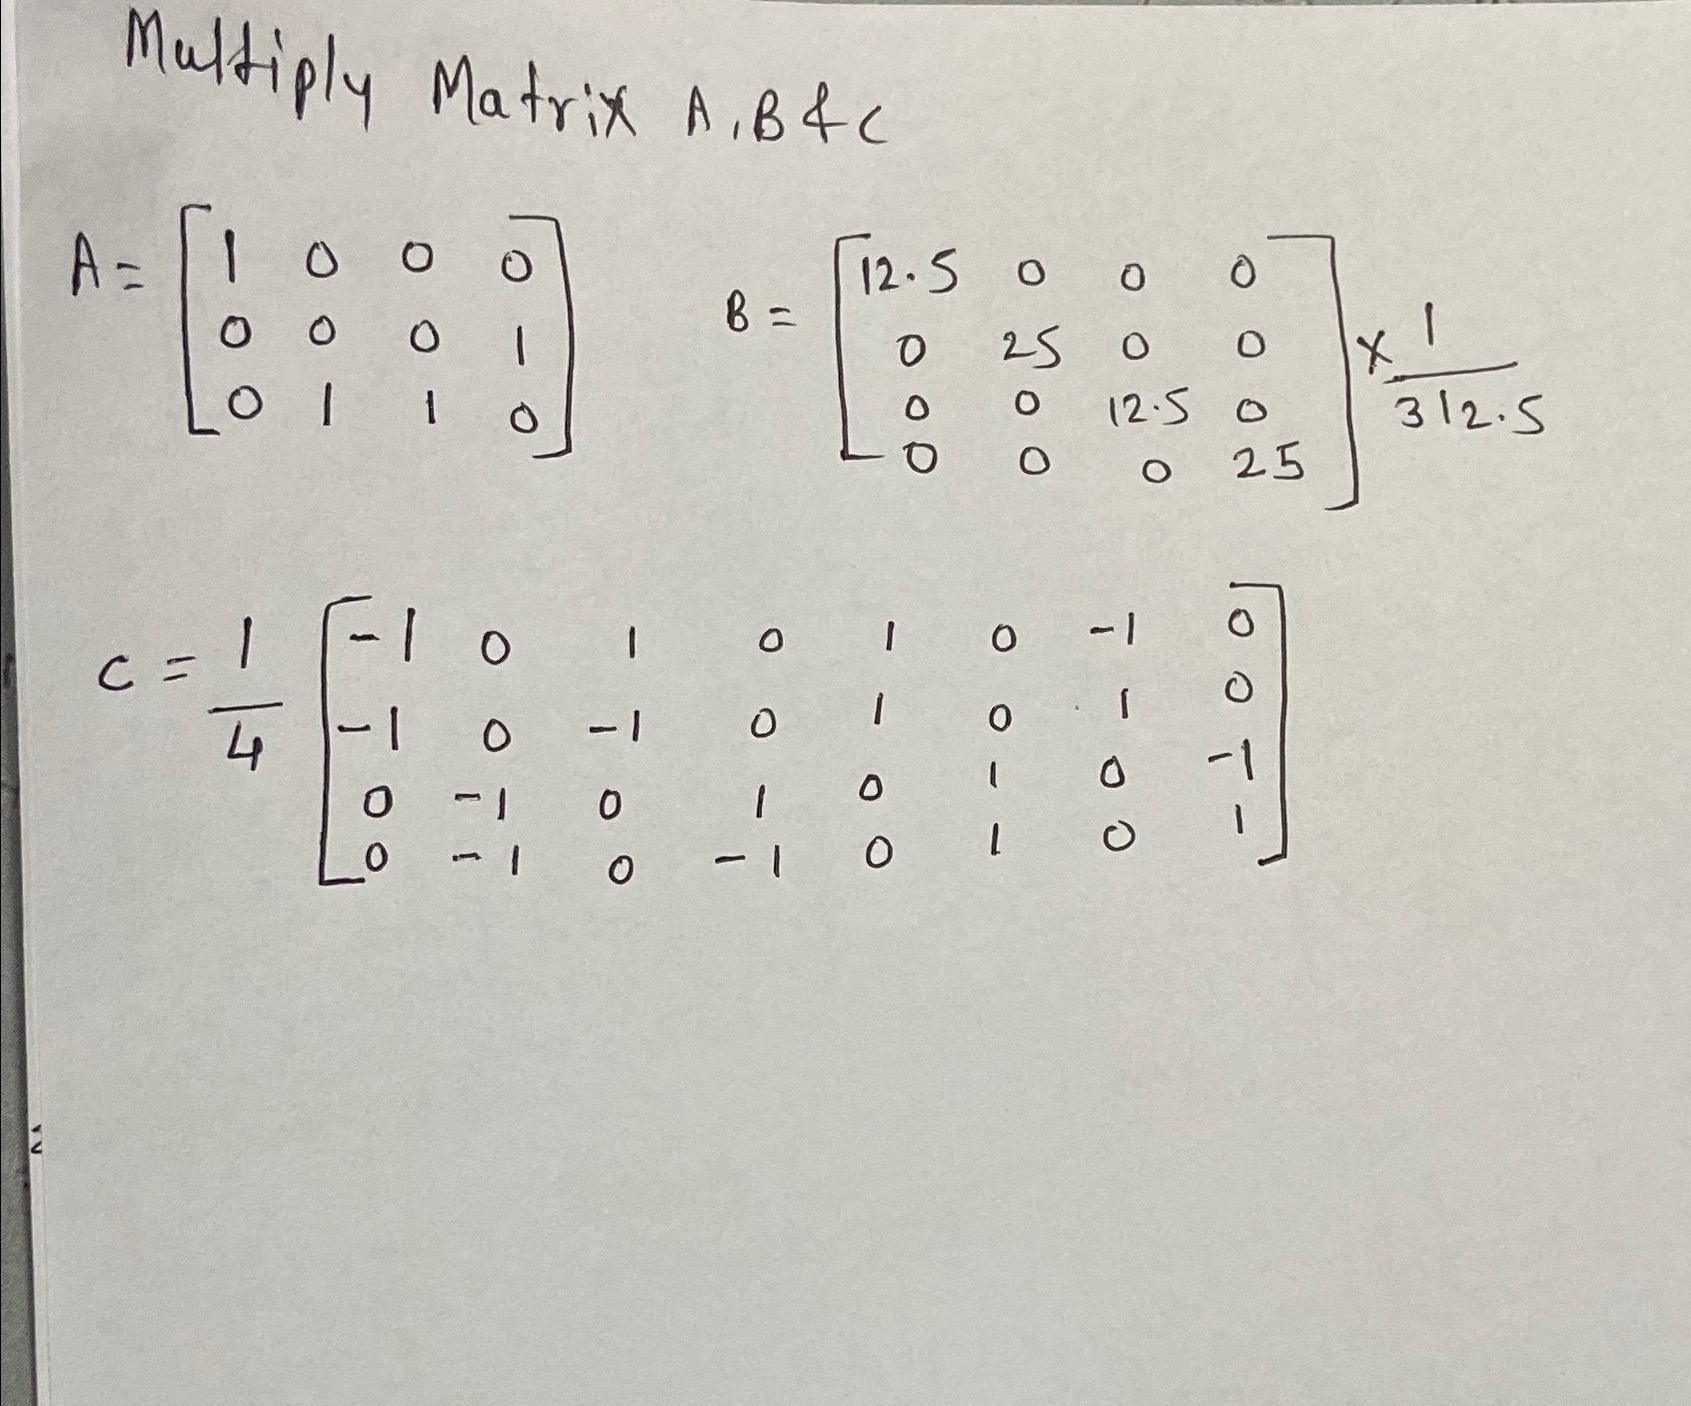 Multiply Matrix A, B & C
A = [1 0 0 0
0 0 0 1
0 1 1 0]
B = [12.5 0 0 0
0 25 0 0
0 0 12.5 0
0 0 0 25] x 1/312.5
C = 1/4 [-1 0 1 0 1 0 -1 0
-1 0 -1 0 1 0 1 0
0 -1 0 1 0 1 0 -1
0 -1 0 -1 0 1 0 1]